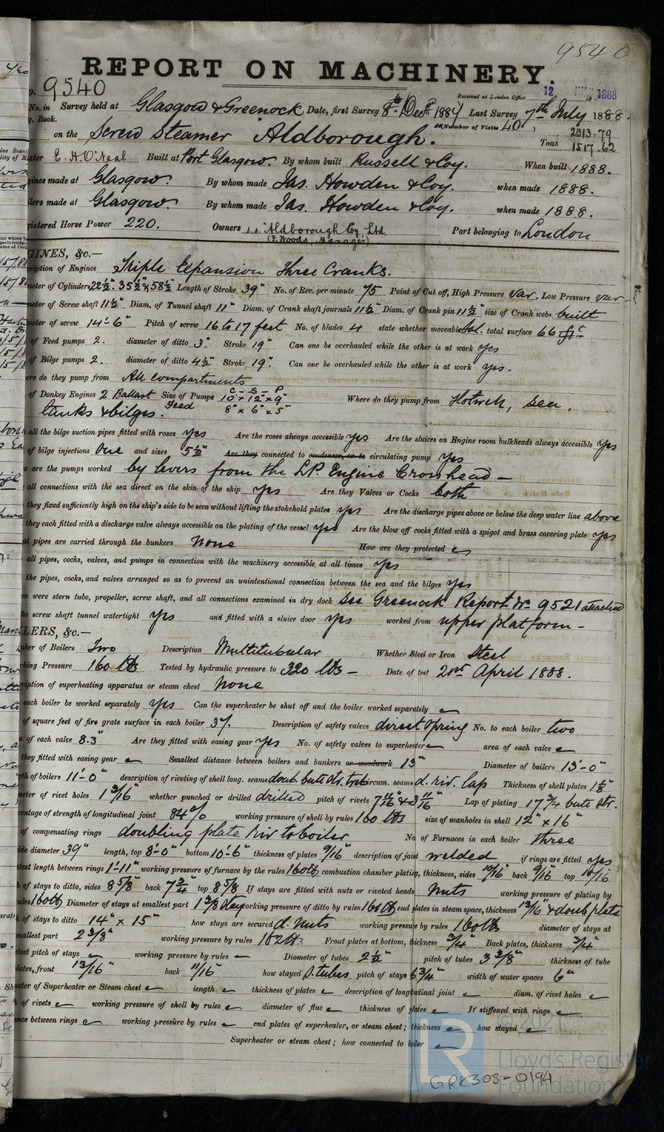 9540
REPORT ON MACHINERY.
9540
Received at London Office 12 1888
No. in Survey held at Glasgow & Greenock Date, first Survey 8th Decr 1887 Last Survey 7th July 1888.
Book. Number of Visits 40
on the Screw Steamer "Aldborough. Tons 2313.79 1517.62
E. H. O'Neal Built at Port Glasgow By whom built Russell & Coy. When built 1888.
gines made at Glasgow. By whom made Jas. Howden & Coy. when made 1888.
lers made at Glasgow By whom made Jas. Howden & Coy. when made 1888.
gistered Horse Power 220. Owners s.s. Aldborough Cy. Ltd. (F. Woods, Manager) Port belonging to London
GINES, &c.—
cription of Engines Triple Expansion Three Cranks.
meter of Cylinders 22½" 35½" & 58½ Length of Stroke 39" No. of Rev. per minute 75 Point of Cut off, High Pressure var. Low Pressure var
meter of Screw shaft 11½" Diam. of Tunnel shaft 11" Diam. of Crank shaft journals 11½" Diam. of Crank pin 11½" size of Crank webs built
meter of screw 14-6" Pitch of screw 16 to 17 feet No. of blades 4 state whether moveable total surface 66
of Feed pumps 2. diameter of ditto 3" Stroke 19" Can one be overhauled while the other is at work yes
of Bilge pumps 2. diameter of ditto 4½" Stroke 19" Can one be overhauled while the other is at work yes.
ere do they pump from All compartments
of Donkey Engines 2 Ballast Size of Pumps C-S-P 10"×12"×9" Where do they pump from Hotwell, sea,
tanks & bilges. Feed 8"×6"×5"
all the bilge suction pipes fitted with roses yes Are the roses always accessible yes Are the sluices on Engine room bulkheads always accessible yes
of bilge injections One and sizes 5½" Are they connected to condenser, or to circulating pump yes
are the pumps worked by levers from the LP Engine Crosshead —
all connections with the sea direct on the skin of the ship yes Are they Valves or Cocks both
they fixed sufficiently high on the ship's side to be seen without lifting the stokehold plates yes Are the discharge pipes above or below the deep water line above
they each fitted with a discharge valve always accessible on the plating of the vessel yes Are the blow off cocks fitted with a spigot and brass covering plate yes
at pipes are carried through the bunkers none How are they protected
all pipes, cocks, valves, and pumps in connection with the machinery accessible at all times yes
the pipes, cocks, and valves arranged so as to prevent an unintentional connection between the sea and the bilges yes
n were stern tube, propeller, screw shaft, and all connections examined in dry dock See Greenock Report No 9521 attached
he screw shaft tunnel watertight yes and fitted with a sluice door yes worked from upper platform —
LERS, &c.—
mber of Boilers Two Description Multitubular Whether Steel or Iron Steel
king Pressure 160 lbs Tested by hydraulic pressure to 320 lbs — Date of test 21st April 1888.
cription of superheating apparatus or steam chest None
each boiler be worked separately yes Can the superheater be shut off and the boiler worked separately
of square feet of fire grate surface in each boiler 37. Description of safety valves direct Spring No. to each boiler two
of each valve 8.3" Are they fitted with easing gear yes No. of safety valves to superheater area of each valve
they fitted with easing gear Smallest distance between boilers and bunkers or woodwork 13" Diameter of boilers 13'-0"
th of boilers 11-0" description of riveting of shell long. seams doub. butt str. circum. seams d. riv. lap Thickness of shell plates
meter of rivet holes 1 3/16" whether punched or drilled drilled pitch of rivets Lap of plating 17 3/4 butt str.
centage of strength of longitudinal joint 84% working pressure of shell by rules 160 lbs size of manholes in shell 12" × 16"
of compensating rings doubling plate riv to boiler No. of Furnaces in each boiler three
side diameter 39" length, top 8'-0" bottom 10'-6" thickness of plates 9/16" description of joint welded if rings are fitted yes
atest length between rings 1'-11" working pressure of furnace by the rules 160 lb combustion chamber plating, thickness, sides back 9/16 top
h of stays to ditto, sides 8 5/8 back 7 3/4 top 8 5/8 If stays are fitted with nuts or riveted heads Nuts working pressure of plating by
rules 160 lb Diameter of stays at smallest part 1 3/8 working pressure of ditto by rules 160 lb end plates in steam space, thickness 13/16 & doub. plate
h of stays to ditto 14" × 15" how stays are secured d. nuts working pressure by rules 160 lb diameter of stays at
mallest part 2 3/8" working pressure by rules 182 lb. Front plates at bottom, thickness 3/4" Back plates, thickness 3/4"
atest pitch of stays working pressure by rules Diameter of tubes 2½" pitch of tubes 3 3/8" thickness of tube
ates, front 13/16" back 11/16" how stayed S. tubes pitch of stays 6 3/4" width of water spaces 6"
eter of Superheater or Steam chest length thickness of plates description of longitudinal joint diam. of rivet holes
h of rivets working pressure of shell by rules diameter of flue thickness of plates If stiffened with rings
ance between rings working pressure by rules end plates of superheater, or steam chest; thickness how stayed
Superheater or steam chest; how connected to boiler
GRK308-0194
Lloyd's Register
Foundation